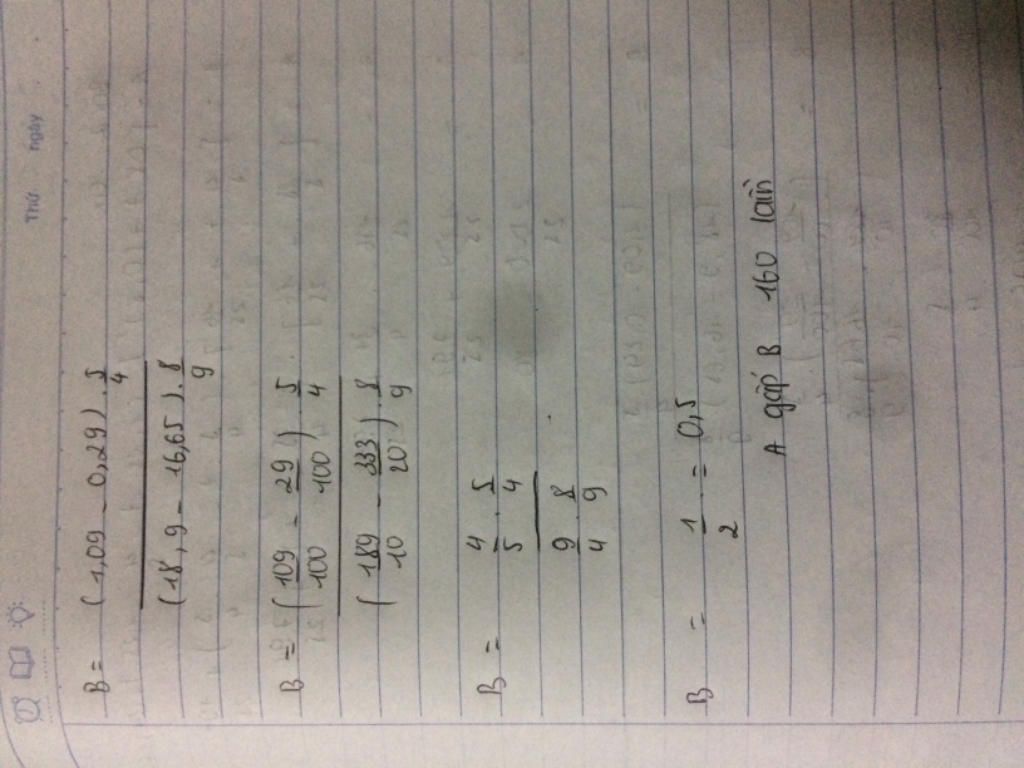 Thứ ngày
B = (1,09 - 0,29) . 5/4
(18,9 - 16,65) . 8/9
B = (109/100 - 29/100) . 5/4
(189/10 - 333/20) . 8/9
B = 4/5 . 5/4
9/4 . 8/9
B = 1/2 = 0,5
A gấp B 160 lần